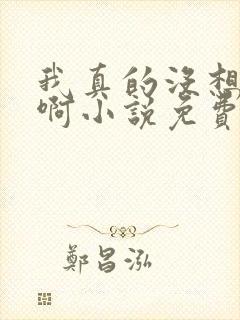 我真的没想
啊小說免費
鄭昌泓